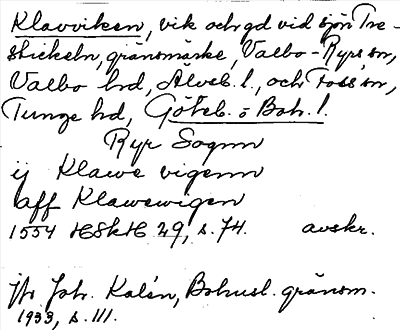 Klavviken, vik och gd vid sjön Tre-
stickeln, gränsmärke, Valbo-Ryrs sn,
Valbo hd, Älvsb. l., och Foss sn,
Tunge hd, Göteb. o Boh. l.
Ryr Sognn
ij Klawe vigenn
aff Klawewigen
1554 HSkH 29, s. 74. avskr.
jfr Joh. Kalén, Bohusl. gränsm.
1933, s. 111.